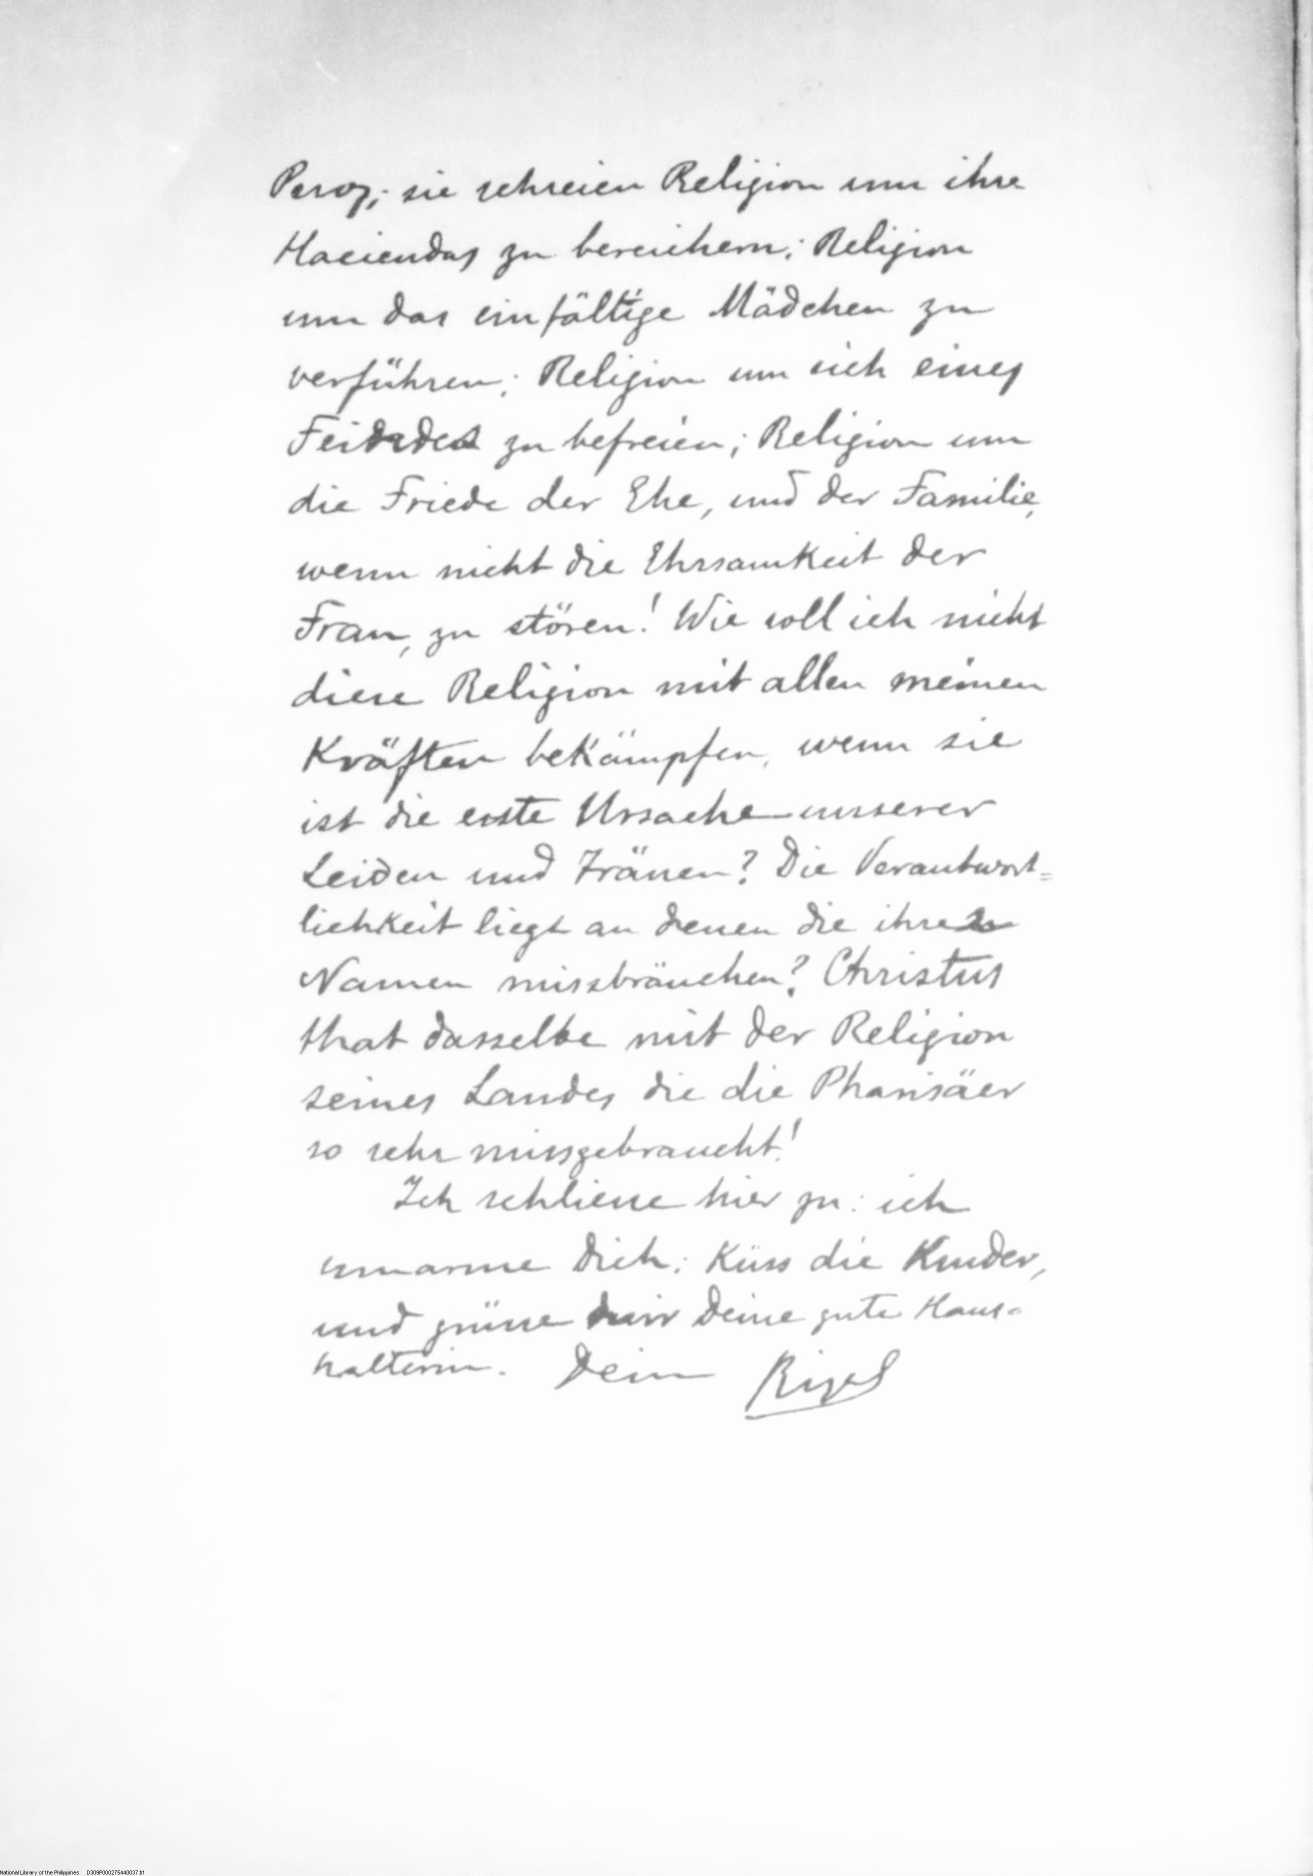 Pesos; sie schreien Religion um ihre
Haciendas zu bereichern; Religion
um das einfältige Mädchen zu
verführen; Religion um sich eines
zu befreien; Religion um
die Friede der Ehe, und der Familie,
wenn nicht die Ehrsamkeit der
Frau, zu stören! Wie soll ich nicht
diese Religion mit allen meinen
Kräften bekämpfen, wenn sie
ist die erste Ursache unserer
Leiden und Tränen? Die Verantwort=
lichkeit liegt an denen die ihren
Namen missbräuchen? Christus
that dasselbe mit der Religion
seines Landes die die Pharisäer
so sehr missgebraucht!
Ich schliesse hier zu: ich
umarme Dich; Küss die Kinder,
und grüsse Deine gute Haus-
halterin. Dein Rizal
National Library of the Philippines